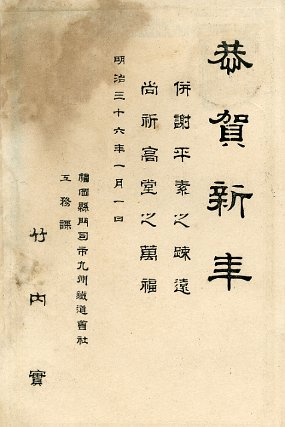 恭賀新年
併謝平素之疎遠
尚祈高堂之萬福
明治三十六年一月一日
福岡縣門司市九州鐵道會社
工務課
竹内實